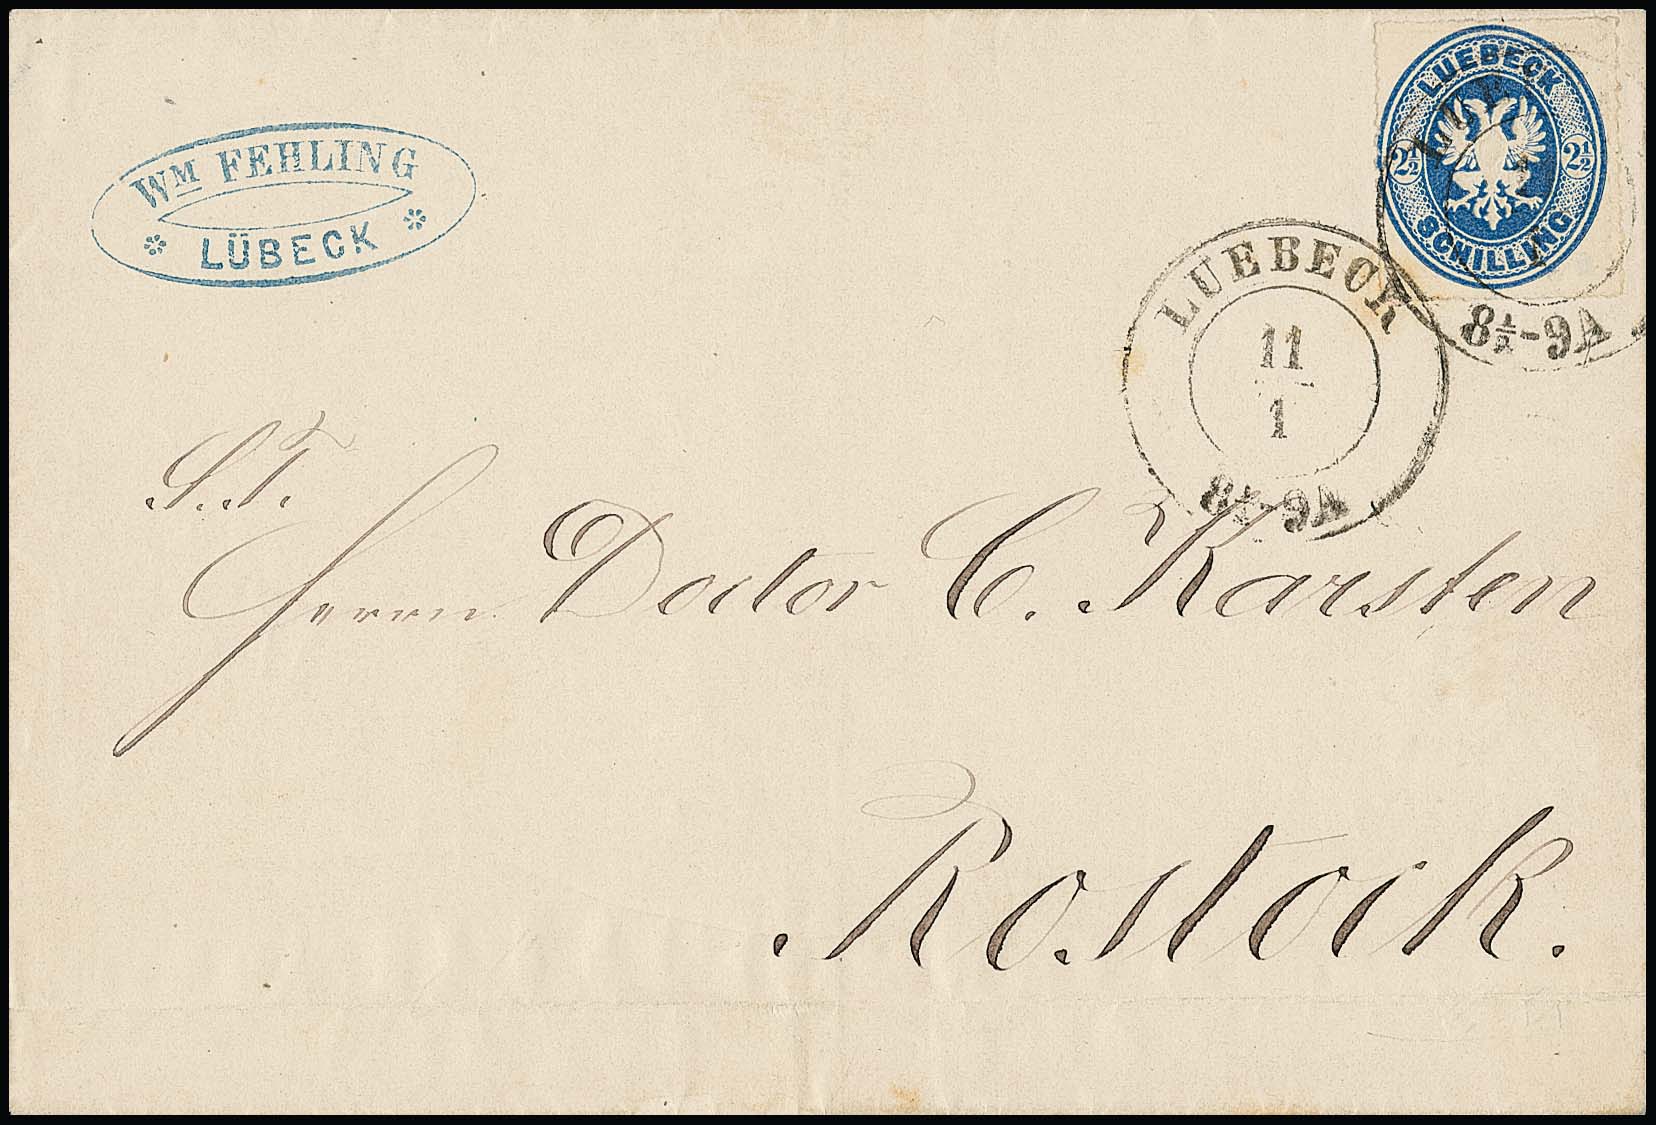 Wᴹ FEHLING
LÜBECK
LUEBECK
2½ 2½
SCHILLING
LUEBECK
11
1
8½-9A
8½-9A
S. T.
Herrn Doctor C. Karsten
Rostock.